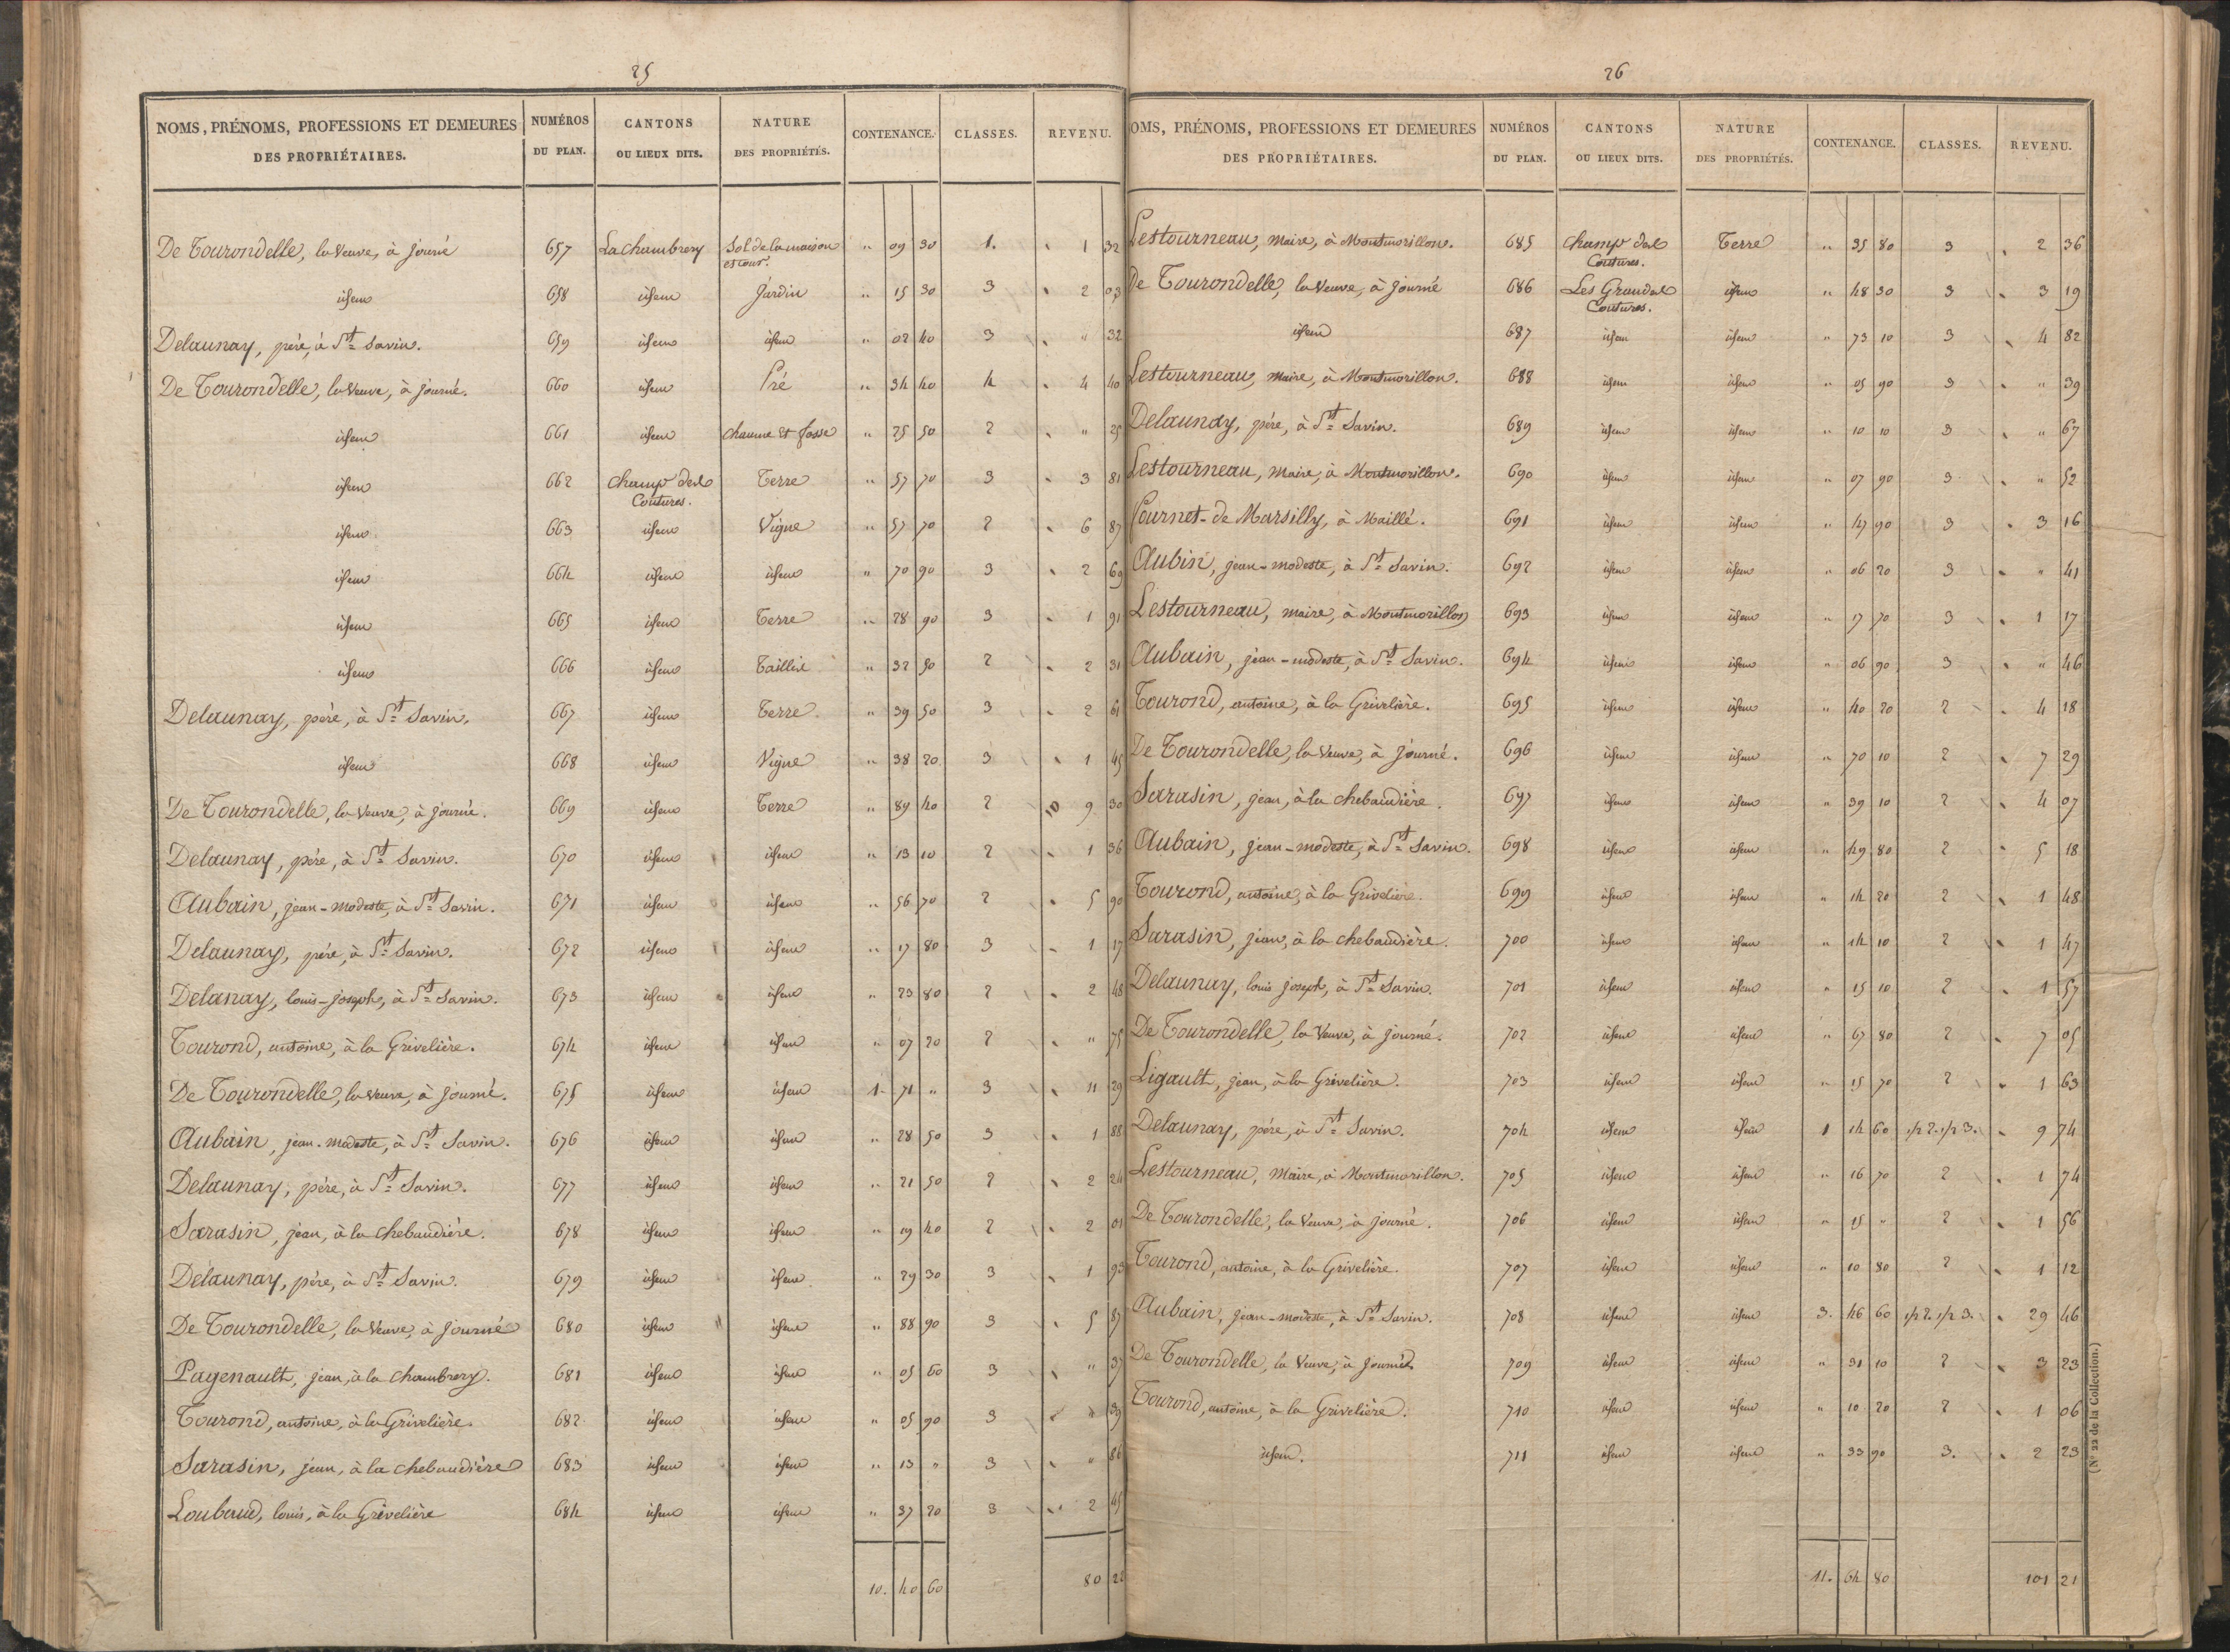 25
NOMS, PRÉNOMS, PROFESSIONS ET DEMEURES DES PROPRIÉTAIRES. NUMÉROS DU PLAN. CANTONS OU LIEUX DITS. NATURE DES PROPRIÉTÉS. CONTENANCE. CLASSES. REVENU.
De Tourondelle, la Veuve, à Journé 657 La Chambrery Sol de la maison et cour. " 09 30 1. 1 32
idem 658 idem Jardin " 15 30 3 2 03
Delaunay, père, à St Savin. 659 idem idem " 02 40 3 " 32
De Tourondelle, la Veuve, à Journé. 660 idem Pré " 34 40 4 4 40
idem 661 idem Chaume et fosse " 25 50 2 " 25
idem 662 Champ des Coutures. Terre " 57 70 3 3 81
idem 663 idem Vigne " 57 70 2 6 87
idem 664 idem idem " 70 90 3 2 69
idem 665 idem Terre " 28 90 3 1 91
idem 666 idem Taillis " 32 50 2 2 31
Delaunay, père, à St Savin. 667 idem Terre " 39 50 3 2 61
idem 668 idem Vigne " 38 20 3 1 45
De Tourondelle, la Veuve, à Journé. 669 idem Terre " 89 40 2 9 30
Delaunay, père, à St Savin. 670 idem idem " 13 10 2 1 36
Aubain, jean-modeste, à St Savin. 671 idem idem " 56 70 2 5 90
Delaunay, père, à St Savin. 672 idem idem " 17 80 3 1 17
Delanay, louis-joseph, à St Savin. 673 idem idem " 23 80 2 2 48
Tourond, antoine, à la Grivelière. 674 idem idem " 07 20 2 " 75
De Tourondelle, la Veuve, à Journé. 675 idem idem 1. 71 " 3 11 29
Aubain, jean-modeste, à St Savin. 676 idem idem " 28 50 3 1 88
Delaunay, père, à St Savin. 677 idem idem " 21 50 2 2 24
Sarasin, jean, à la chebaudière. 678 idem idem " 19 40 2 2 01
Delaunay, père, à St Savin. 679 idem idem " 29 30 3 1 93
De Tourondelle, la Veuve, à Journé 680 idem idem " 88 90 3 5 87
Pagenault, jean, à la Chambrery. 681 idem idem " 05 60 3 " 37
Tourond, antoine, à la Grivelière. 682 idem idem " 05 90 3 " 39
Sarasin, jean, à la chebaudière 683 idem idem " 13 " 3 " 86
Loubaud, louis, à la Grivelière 684 idem idem " 37 20 3 2 45
10. 40 60 80 22
26
OMS, PRÉNOMS, PROFESSIONS ET DEMEURES DES PROPRIÉTAIRES. NUMÉROS DU PLAN. CANTONS OU LIEUX DITS. NATURE DES PROPRIÉTÉS. CONTENANCE. CLASSES. REVENU.
Lestourneau, maire, à Montmorillon. 685 Champ des Coutures. Terre " 35 80 3 2 36
De Tourondelle, la Veuve, à Journé 686 Les Grandes Coutures. idem " 48 30 3 3 19
idem 687 idem idem " 73 10 3 4 82
Lestourneau, maire, à Montmorillon. 688 idem idem " 05 90 3 " 39
Delaunay, père, à St Savin. 689 idem idem " 10 10 3 " 67
Lestourneau, maire, à Montmorillon. 690 idem idem " 07 90 3 " 52
Pournet-de Marsilly, à Maillé. 691 idem idem " 47 90 3 3 16
Aubin, jean-modeste, à St Savin. 692 idem idem " 06 20 3 " 41
Lestourneau, maire, à Montmorillon 693 idem idem " 17 70 3 1 17
Aubain, jean-modeste, à St Savin. 694 idem idem " 06 90 3 " 46
Tourond, antoine, à la Grivelière. 695 idem idem " 40 20 2 4 18
De Tourondelle, la Veuve, à Journé. 696 idem idem " 70 10 2 7 29
Sarasin, jean, à la chebaudière. 697 idem idem " 39 10 2 4 07
Aubain, jean-modeste, à St Savin. 698 idem idem " 49 80 2 5 18
Tourond, antoine, à la Grivelière. 699 idem idem " 14 20 2 1 48
Sarasin, jean, à la chebaudière. 700 idem idem " 14 10 2 1 47
Delaunay, louis joseph, à St Savin. 701 idem idem " 15 10 2 1 57
De Tourondelle, la Veuve, à journé. 702 idem idem " 67 80 2 7 05
Ligault, jean, à la Grivelière. 703 idem idem " 15 70 2 1 63
Delaunay, père, à St Savin. 704 idem idem 1 14 60 1/2 2. 1/2 3. 9 74
Lestourneau, Maire, à Montmorillon. 705 idem idem " 16 70 2 1 74
De Tourondelle, la Veuve, à journé. 706 idem idem " 15 " 2 1 56
Tourond, antoine, à la Grivelière. 707 idem idem " 10 80 2 1 12
Aubain, jean-modeste, à St Savin. 708 idem idem 3. 46 60 1/2 2. 1/2 3. 29 46
De Tourondelle, la Veuve, à Journé. 709 idem idem " 31 10 2 3 23
Tourond, antoine, à la Grivelière. 710 idem idem " 10 20 2 1 06
idem. 711 idem idem " 33 90 3. 2 23
11. 64 80 101 21
(N° 22 de la Collection.)